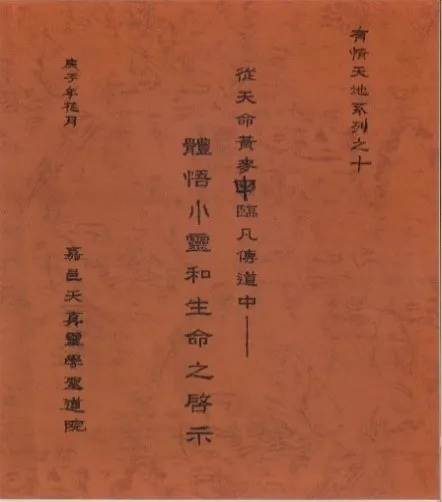 有情天地系列之十
從天命黃麥申臨凡傳道中——
體悟小靈和生命之啓示
庚子年花月
嘉邑天真靈學聖道院